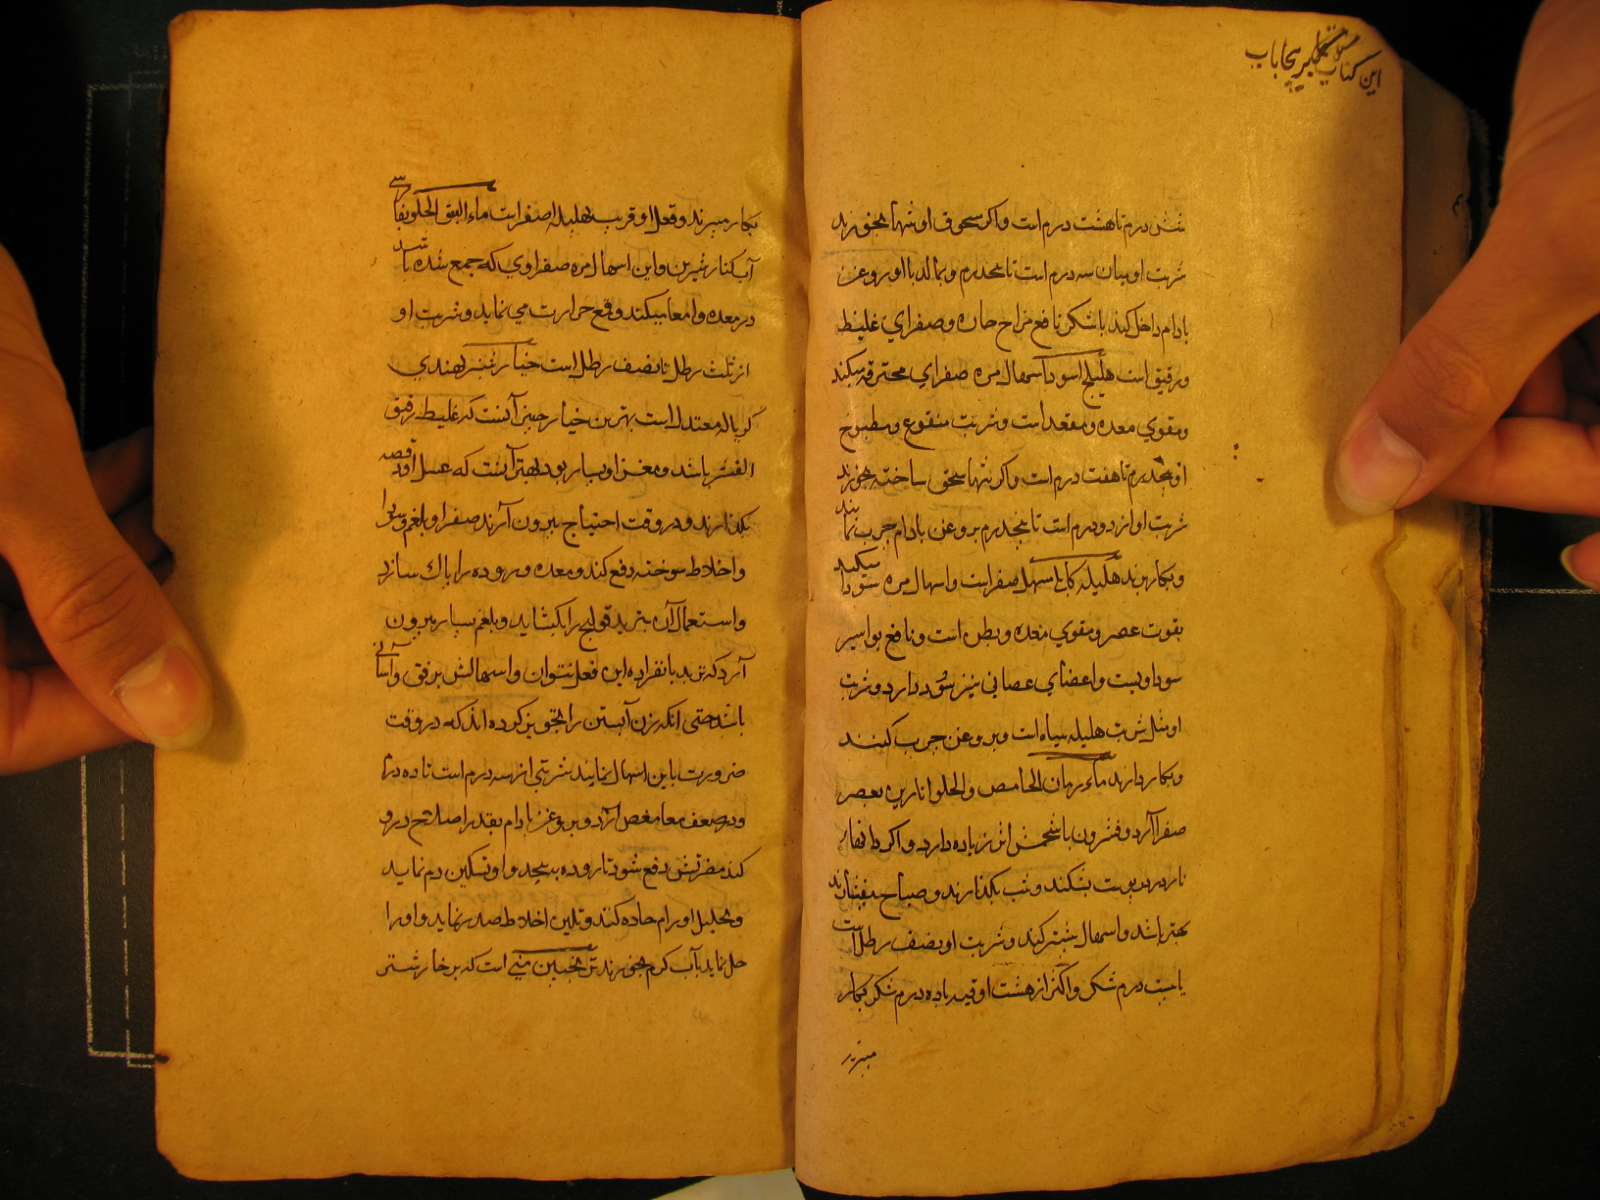 این کتاب مشتمل بر پنجاه باب
شش درم تا هشت درم است واکر سحوق او تنها بخورند
شربت او میان سه درم است تا پنجدرم وبمالد با او روغن
بادام داخل کند با شکر نافع مزاج حاره وصفرای غلیظ
ورقیق است هلیلج اسود اسهال مره صفرای محترقه میکند
ومقوی معده ومقعد است وشربت منقوع ومطبوخ
او پنجدرم تا هفت درم است واکر تنها سحق ساخته بخورند
شربت او از دو درم است تا پنجدرم بروغن بادام چرب نمایند
وبکار برند هلیله کابلی مسهل صفراست واسهال مره سودا میکند
بقوت عصر ومقوی معده وبطن است ونافع بواسیر
سوداویست واعضای عصبانی نیز سود دارد وشربت
او مثل شربت هلیله سیاه است وبروغن چرب کنند
وبکار دارند ماء رمان الحامض والحلو انارین بعصر
صفرا آرد وفشردن با شحمش اثر زیاده دارد واکر دانهای
نار در پوست بشکنند وشب بکذارند وصباح بیفشارند
بهتر باشد واسهال بیشتر کند وشربت او نصف رطل است
یا بیست درم شکر واکثر از هشت اوقیه با ده درم شکر بکار
میبرند
بکار میبرند وفعل او قریب بهلیله اصفر است ماء النبق الحلو بفارسی
آب کنار شیرین واین اسهال مره صفراوی که جمع شده باشد
در معده وامعا میکند ودفع حرارت می نماید وشربت او
از ثلث رطل تا نصف رطل است خیار شنبر بهندی
کرپاله معتدل است بهترین خیار چنبر آنست که غلیظ رقیق
القشر باشد ومغز او بسیار بود بهتر آنست که عسل او در قصبه
بکذارند ودر وقت احتیاج بیرون آرند صفرا وبلغم وسودا
واخلاط سوخته دفع کند ومعده وروده را پاک سازد
واستعمال آن بتربد قولنج را بکشاید وبلغم بسیار بیرون
آرد که تربد بانفراده این فعل نتوان واسهالش برفق وآسانی
باشد حتی انکه زن آبستن را تجویز کرده اند که در وقت
ضرورت باین اسهال نمایند شربتی از سه درم است تا ده درم
ودر ضعف معا مغص آرد وبروغن بادام بقدر اصلاح درو
کند مضرتش دفع شود تا روده نپیچد واو تسکین دم نماید
وتحلیل اورام حاده کند وتلیین اخلاط صدر نماید واو را
حل نماید بآب کرم بخورند ترنجبین منی است که بر خار شتر